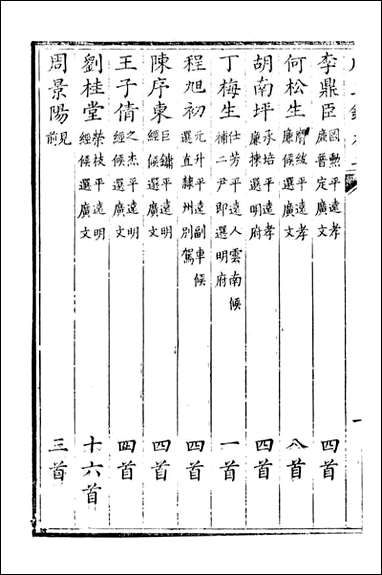 李鼎臣 國勳平遠孝廉普定廣文 四首
何松生 平遠孝廉候選廣文 八首
胡南坪 承培平遠孝廉揀選明府 四首
丁梅生 仕芳平遠人雲南候補二尹即選明府 一首
程旭初 元升平遠副車候選直隸州別駕 四首
陳序東 巨鏞平遠明經候選廣文 四首
王子倩 之杰平遠明經候選廣文 四首
劉桂堂 榮枝平遠明經候選廣文 十六首
周景陽 見前 三首